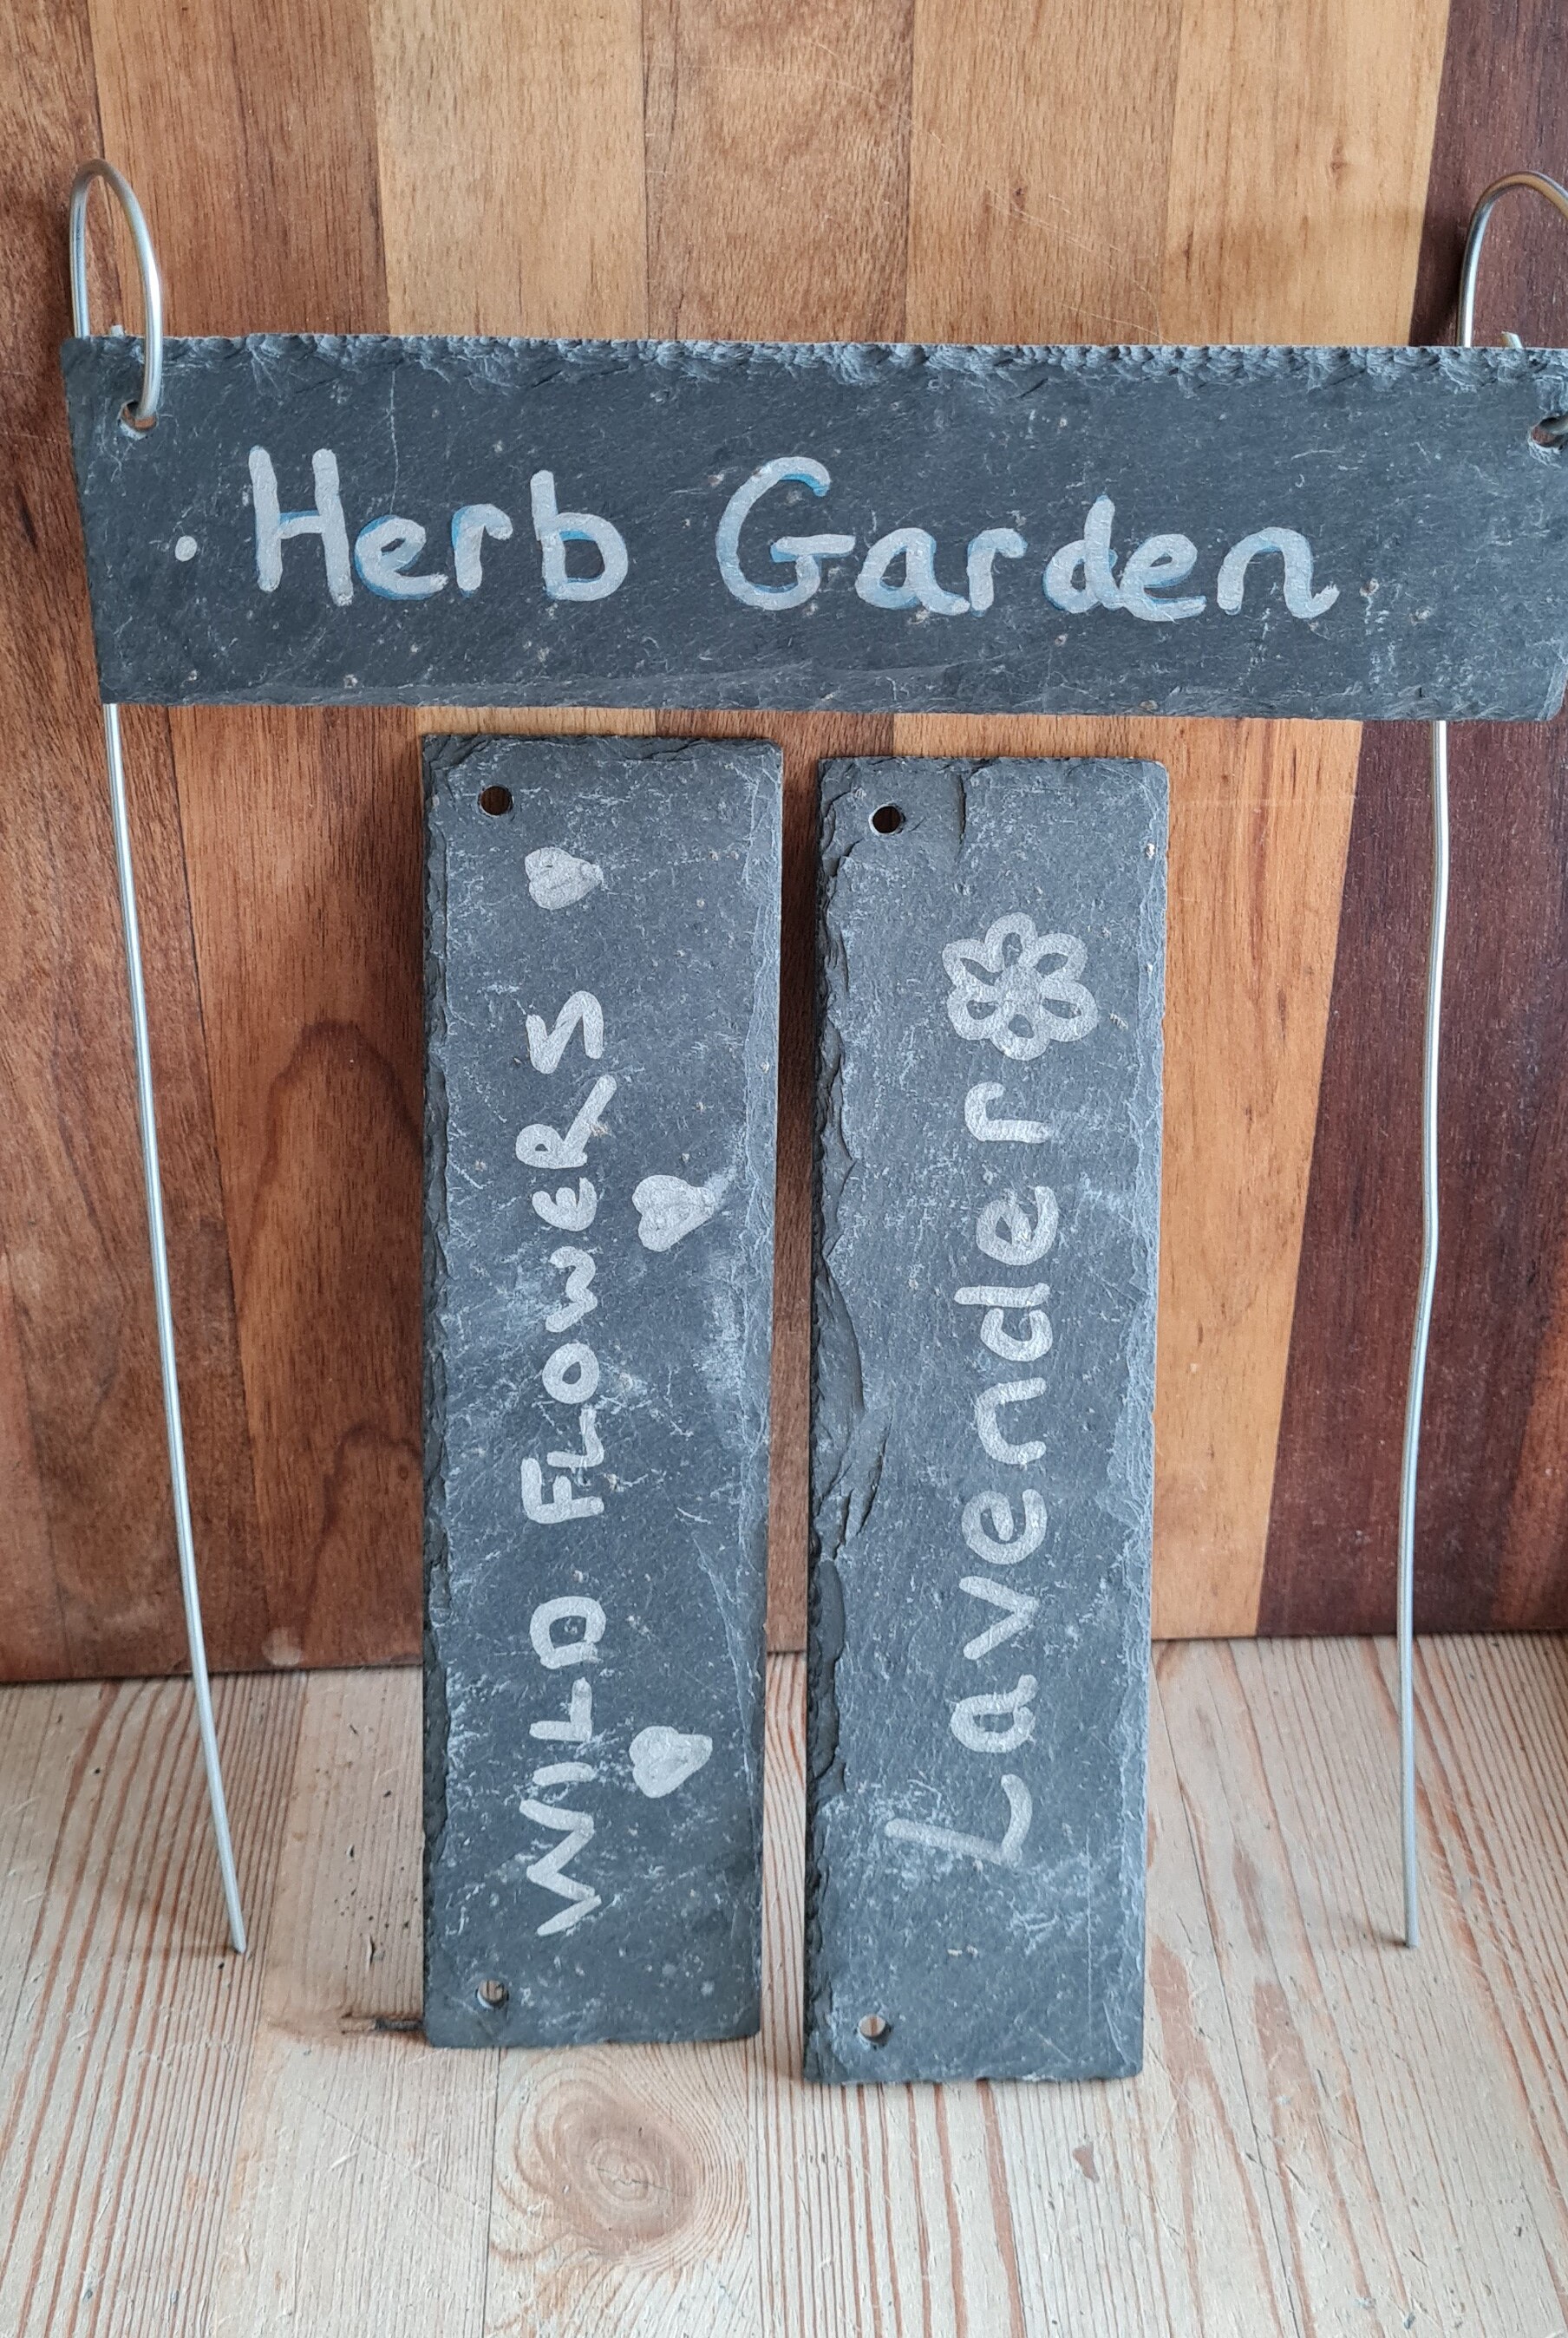 Herb Garden
WILD FLOWERS
Lavender